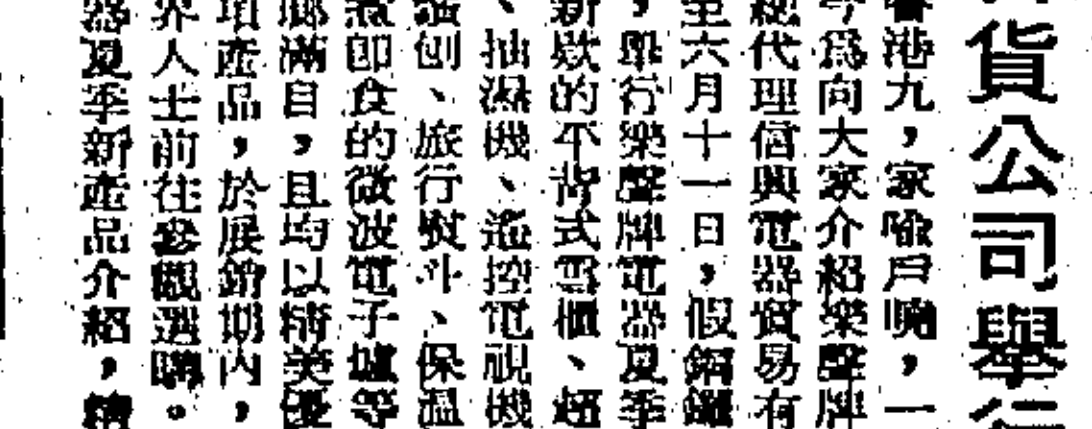 貨公司舉行
港九，家喻戶曉，一
今為向大家介紹樂聲牌
總代理信興電器貿易有
至六月十一日，假銅鑼
，舉行樂聲牌電器夏季
新欵的不背式雪櫃、超
、抽濕機、遙控電視機
刨、旅行熨斗、保溫
煮即食的微波電子爐等
廊滿目，且均以精美優
項產品，於展銷期內，
界人士前往參觀選購。
器夏季新產品介紹，精